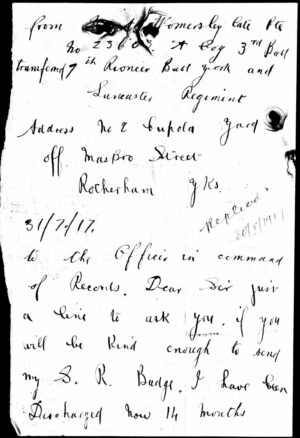 from Womersley late Pte
No 2360. A Coy 3rd Batt
transfered 7th Pioneer Batt York and
Lancaster Regiment
Address No 2 Cupola Yard
off Masbro Street
Rotherham Yks
31/7/17.
Replied
to the Officer in command
of Records. Dear Sir just
a line to ask you. if you
will be Kind enough to send
my S. R. Badge. I have been
Discharged now 14 months